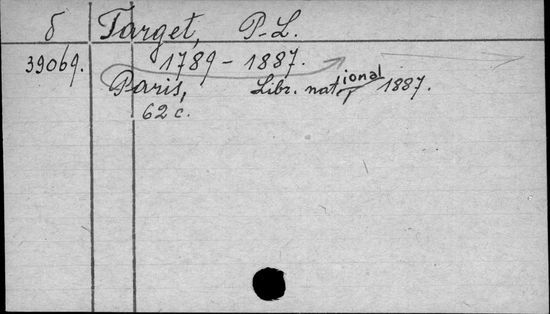 б Target, P-L.
39069. 1789-1887.
Paris, Libr. national 1887.
62 c.